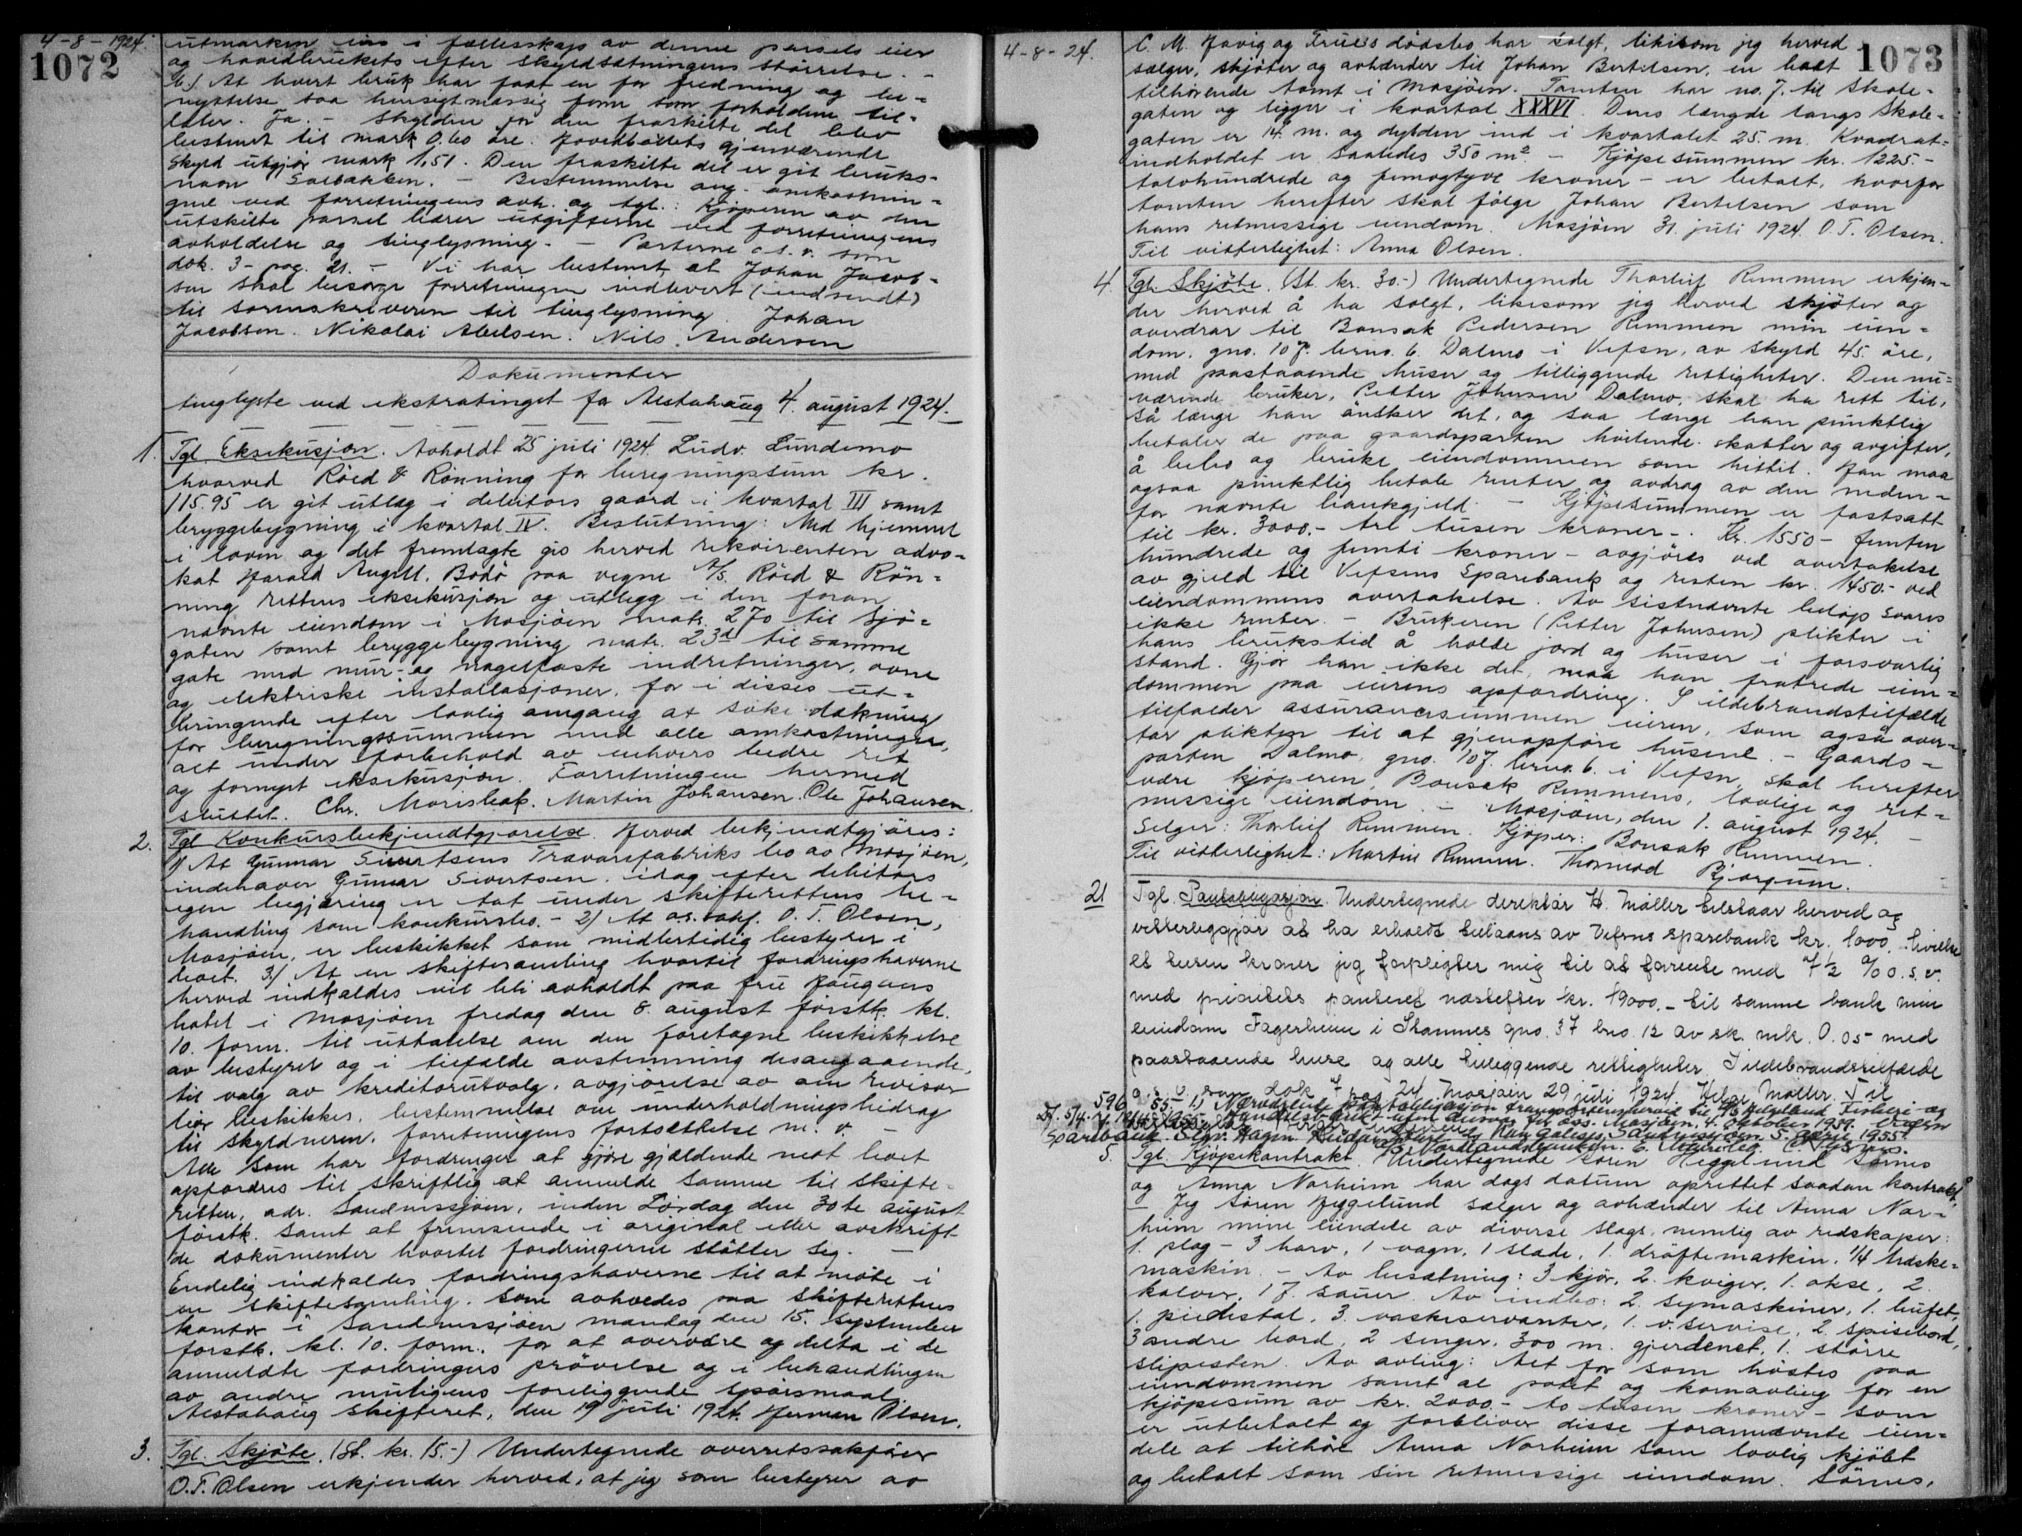 4-8-1924.
1072
utmarken eies i fællesskap av denne parsels eier
og hovedbrukets efter skyldsætningens størrelse. -
b.) At hvert bruk har faat en for fredning og be-
nyttelse saa hensigtmæssig form som forholdene til-
later. Ja. - Skylden for den fraskilte del blev
bestemt til mark 0.60 öre. Hovedbölets gjenværende
skyld utgjör mark 1,51. Den fraskilte del er git bruks-
navn Solbakken. - Bestemmelse ang. omkostnin-
gene ved forretningens avh. og tgl.: Kjöperen av den
utskilte parsel bærer utgifterne ved forretningens
avholdelse og tinglysning. - Parterne o.s.v. som
dok. 3 - pag. 21. - Vi har bestemt at Johan Jacob-
sen skal besörge forretningen indlevert (indsendt)
til sorenskriveren til tinglysning. Johan
Jacobsen. Nikolai Abelsen. Nils Andersen
Dokumenter
tinglyste ved ekstratinget for Alstahaug 4. august 1924.
1. Tgl. Eksekusjon. Avholdt 25 juli 1924 Ludv. Lundemo
hvorved Röed & Rönning for beregningssum kr.
115.95 er git utlæg i debitors gaard i kvartal III samt
bryggebygning i kvartal IV. Beslutning: Med hjemmel
i loven og det fremlagte gis herved rekvirenten advo-
kat Harald Angell, Bodö paa vegne A/S. Röed & Rön-
ning rettens eksekusjon og utlegg i den foran
nævnte eiendom i Mosjöen matr. 270 til Sjö-
gaten samt bryggebygning matr. 23d til samme
gate med mur- og nagelfaste indretninger, ovne
og elektriske installasjoner, for i disses ut-
bringende efter lovlig omgang at söke dækning
for beregningssummen med alle omkostninger,
alt under forbehold av enhvers bedre ret
og fornyet eksekusjon. Forretningen hermed
sluttet. Chr. Morisbak. Martin Johansen. Ole Johansen.
2. Tgl. Konkursbekjendtgjörelse. Herved bekjendtgjöres:
1) At Gunnar Sivertsens Trævarefabriks bo av Mosjöen,
indehaver Gunnar Sivertsen. idag efter debitors
egen begjæring er tat under skifterettens be-
handling som konkursbo. - 2) At o.r.sakf. O. T. Olsen,
Mosjöen, er beskikket som midlertidig bestyrer i
boet. 3) At en skiftesamling hvortil fordringshaverne
herved indkaldes vil bli avholdt paa fru Haugans
hotel i Mosjöen fredag den 8. august förstk. kl.
10. form. til uttalelse om den foretagne beskikkelse
av bestyrer og i tilfælde avstemning desangaaende,
til valg av kreditorutvalg, avgjörelse av om revisor
bör beskikkes, bestemmelse om underholdningsbidrag
til skyldneren, forretningens fortsettelse m. v. -
Alle som har fordringer at gjöre gjældende mot boet
opfordres til skriftlig at anmelde samme til skifte-
retten, adr. Sandnessjöen, inden Lördag den 30te august
förstk. samt at fremsende i original eller avskrift
de dokumenter hvortil fordringerne stötter seg. -
Endelig indkaldes fordringshaverne til at möte i
en skiftesamling, som avholdes paa skifterettens
kontor i Sandnessjöen mandag den 15. september
förstk. kl. 10. form. for at overvære og delta i de
anmeldte fordringers prövelse og i behandlingen
av andre muligens foreliggende spörsmaal.
Alstahaug skifteret, den 19 juli 1924. Herman Olsen.
3. Tgl. Skjöte. (St. kr. 15.-) Undertegnede overretssakförer
O.T. Olsen erkjender herved, at jeg som bestyrer av
4-8-24.
1073
C. M. Havig og Frues dödsbo har solgt, likesom jeg herved
sælger, skjöter og avhænder til Johan Bertelsen, en boet
tilhörende tomt i Mosjöen. Tomten har no. 7. til Skole-
gaten og ligger i kvartal XXXVI. Dens længde langs Skole-
gaten er 14 m. og dybden ind i kvartalet 25 m. Kvadrat-
indholdet er saaledes 350 m² - Kjöpesummen kr. 1225.-
tolvhundrede og femogtyve kroner - er betalt, hvorfor
tomten herefter skal fölge Johan Bertelsen som
hans retmessige eiendom. Mosjöen 31. juli 1924. O.T. Olsen.
Til vitterlighet: Anna Olsen.
4. Tgl. Skjöte. (St. kr. 30.-) Undertegnede Thorleif Remmen erkjen-
der herved å ha solgt, likesom jeg herved skjöter og
overdrar til Bonsak Pedersen Remmen min eien-
dom, gno. 107. brno. 6. Dalmo i Vefsn, av skyld 45. öre,
med paastaaende huser og tilliggende rettigheter. Den nu-
værende bruker, Petter Johnsen Dalmo, skal ha rett til,
så længe han önsker det, og saa længe han punktlig
betaler de paa gaardsparten hvilende skatter og avgifter,
å bebo og bruke eiendommen som hittil. Han maa
ogsaa punktlig betale renter og avdrag av den neden-
for nævnte bankgjeld. - Kjöpesummen er fastsatt
til kr. 3000.- tre tusen kroner -. Kr. 1550 - femten
hundrede og femti kroner - avgjöres ved overtakelse
av gjeld til Vefsens Sparebank og resten kr. 1450.- ved
eiendommens overtakelse. Av sistnævnte belöp svares
ikke renter. - Brukeren (Petter Johnsen) plikter i
hans brukstid å holde jord og huser i forsvarlig
stand. Gjör han ikke det, maa han fratrede eien-
dommen paa eierens opfordring. I ildebrandstilfælde
tilfalder assurancesummen eieren, som også over-
tar plikten til at gjenopföre husene. - Gaards-
parten Dalmo, gno. 107. brno. 6. i Vefsn, skal herefter
være kjöperen, Bonsak Remmens, lovlige og ret-
messige eiendom. - Mosjöen, den 1. august 1924. -
Selger: Thorleif Remmen. Kjöper: Bonsak Remmen.
Til vitterlighet: Martin Remmen. Thormod Bjørgum.
21 Tgl. Panteobligasjon. Undertegnede direktør H. Møller tilstaar herved og
vitterliggjør at ha erholdt tillaans av Vefsns sparebank kr. 1000,- hvilke
et tusen kroner jeg forpligter mig til at forrente med 7½ % o.s.v.
med prioritets panteret næstefter kr. 19000.- til samme bank min
eiendom Fagerheim i Stamnes gno. 37 bno. 12 av sk. mk. 0.05 med
paastaaende huse og alle tilleggende rettigheter. I ildebrandstilfælde
o.s.v. som dok 7 pag 24 Mosjøen 29 juli 1924. Helge Møller. Til
5. Tgl. Kjöpekontrakt. Undertegnede Sören Heggelund Sörnes
og Anna Norheim har dags datum oprettet saadan kontrakt:
- Jeg Sören Heggelund sælger og avhænder til Anna Nor-
heim mine eiendele av diverse slags, nemlig av redskaper:
1. plog - 3 harv, 1 vagn, 1 slæde, 1. dröftemaskin, 1/4 træske-
maskin. - Av besætning: 3 kjör, 2. kviger, 1. okse, 2
kalver, 17. sauer. Av indbo: 2. symaskiner, 1. buffet,
1. piedestal, 3. vaskeservanter, 1. v. servise, 2. spisebord,
3 andre bord, 2 senger. 300 m. gjerdenet, 1. större
slipesten. Av avling: Alt for som höstes paa
eiendommen samt al potet og kornavling for en
kjöpesum av kr. 2000.- to tusen kroner - som
er utbetalt og forbliver disse forannævnte eien-
dele at tilhöre Anna Norheim som lovlig kjöbt
og betalt som sin retmessige eiendom. Sörnes,